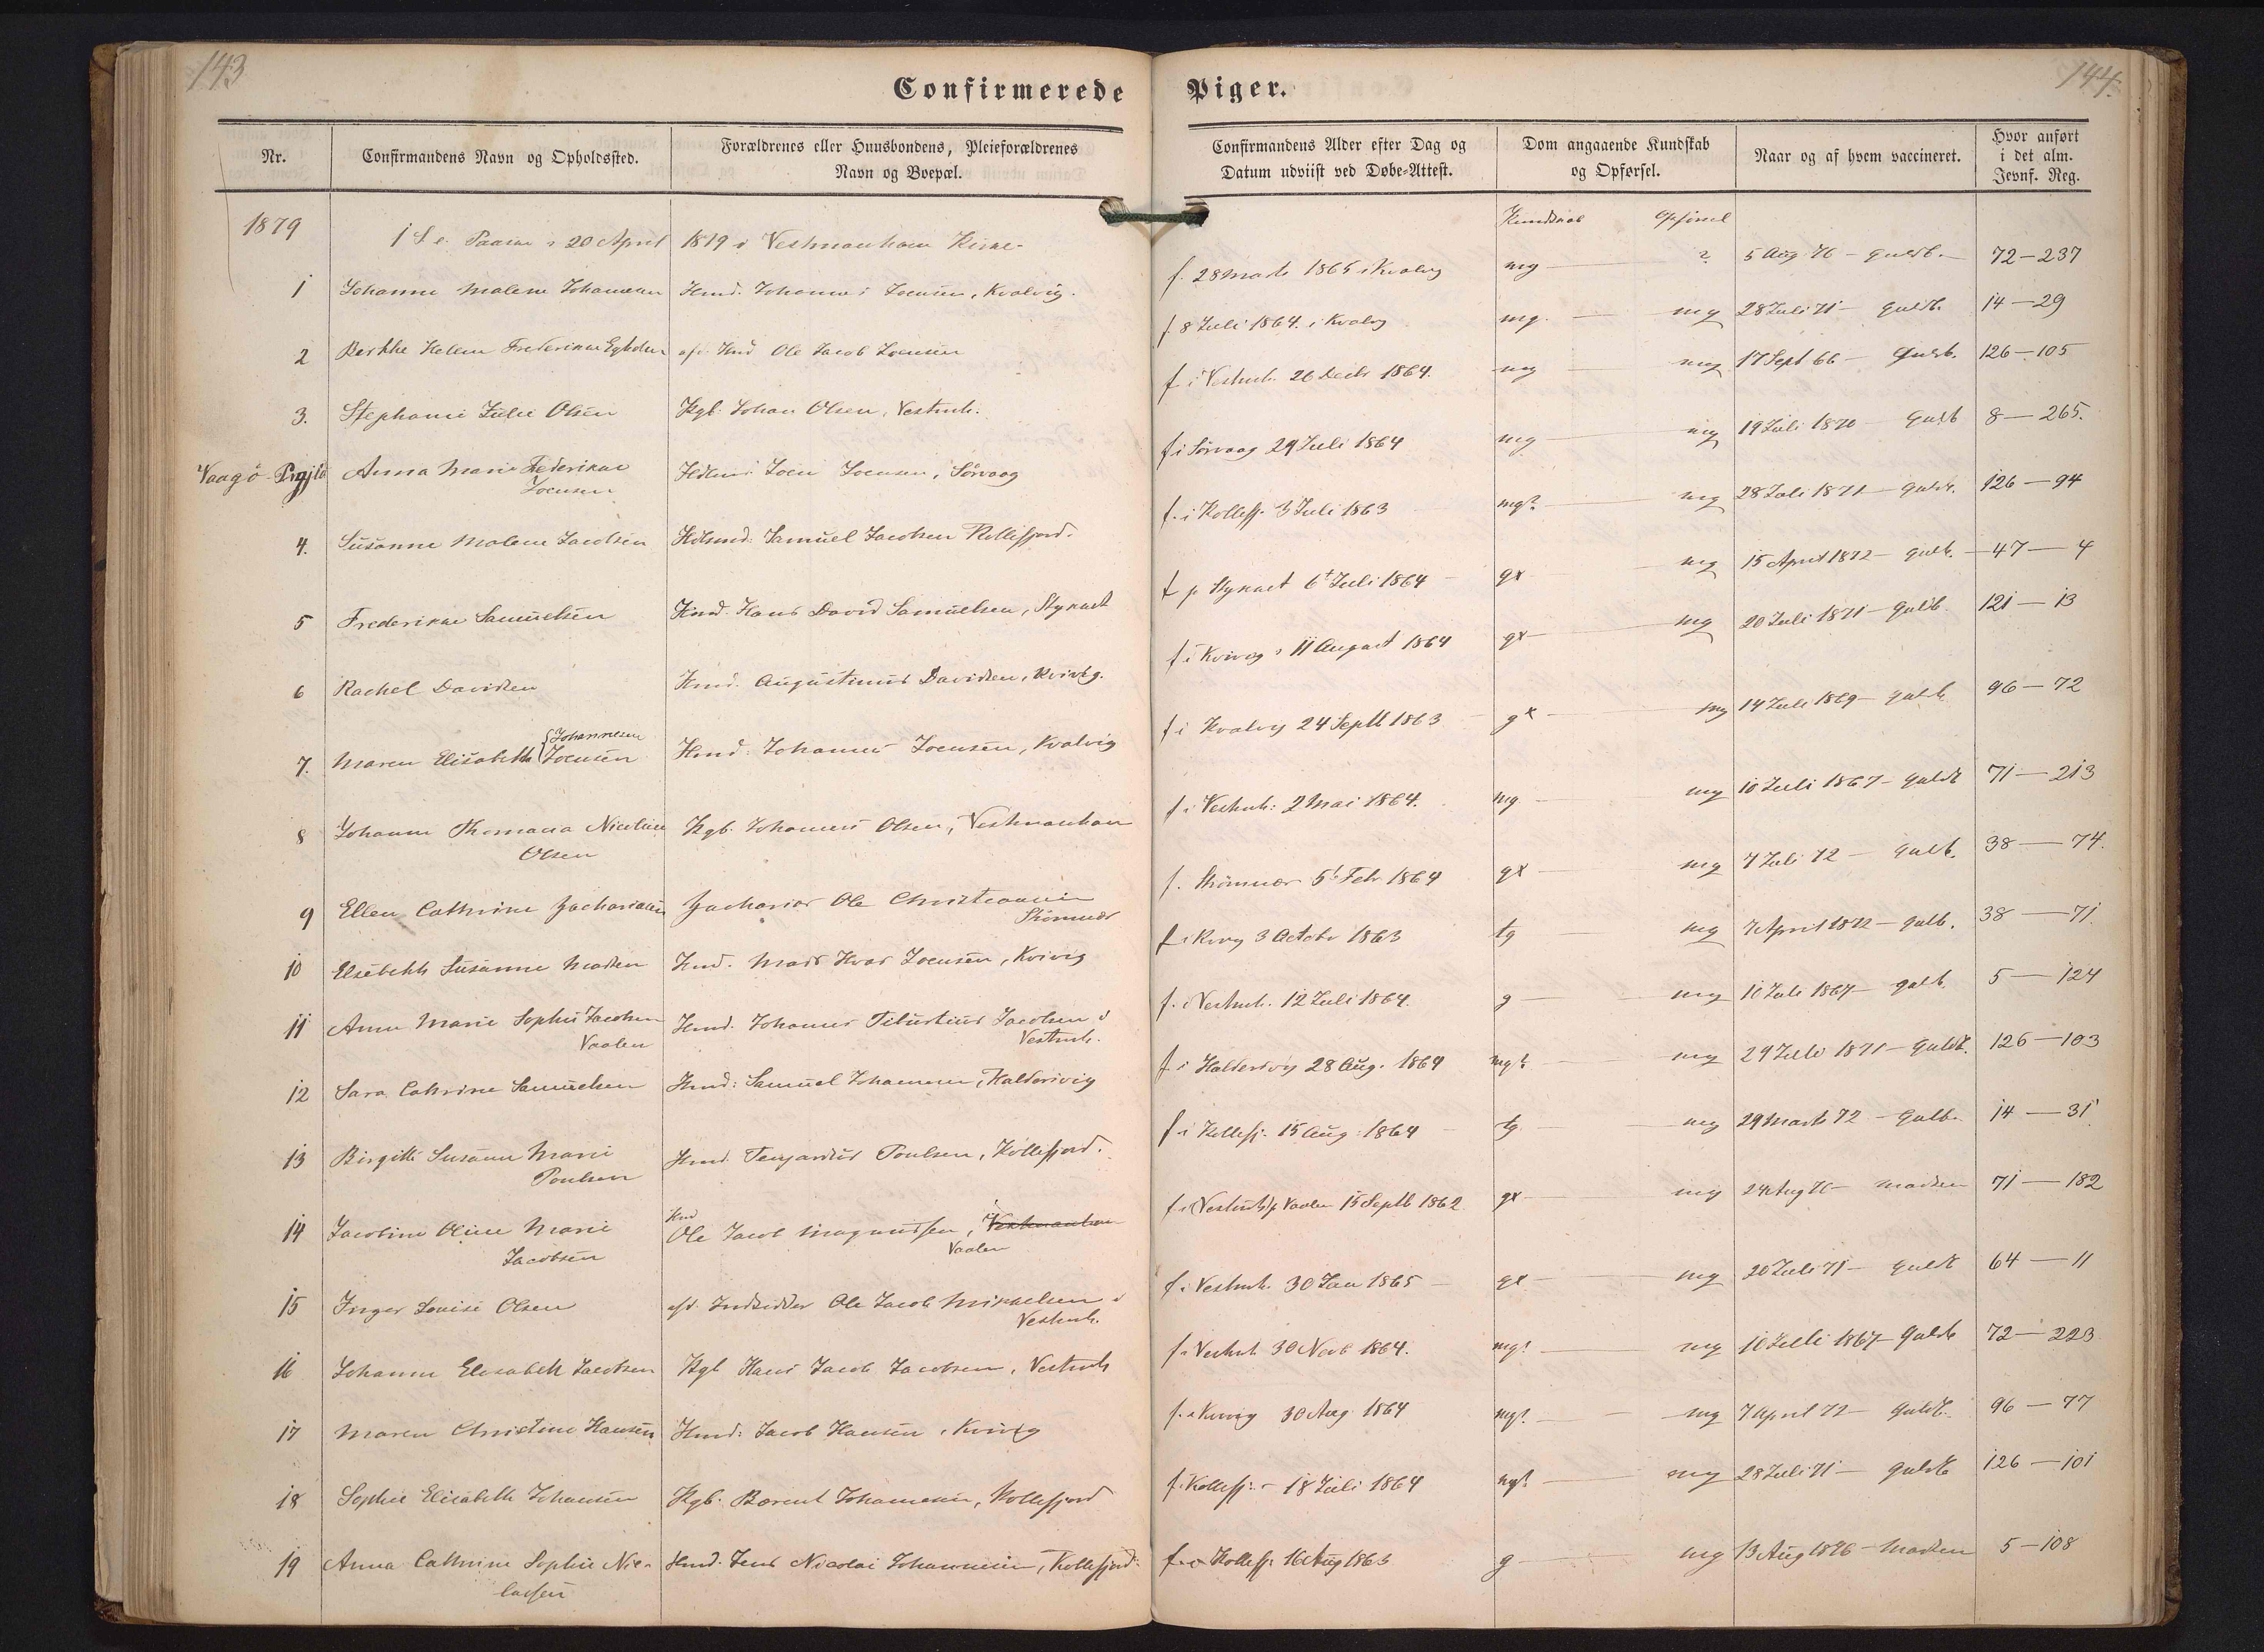 143
144.
Confirmerede Piger.
Nr.
Confirmandens Navn og Opholdssted.
Forældrenes eller Huusbondens, Pleieforældrenes
Navn og Boepæl.
Confirmandens Alder efter Dag og
Datum udviist ved Døbe-Attest.
Dom angaaende Kundskab
og Opførsel.
Naar og af hvem vaccineret.
Hvor anført
i det alm.
Jevnf. Reg.
Kundskab Opførsel
1879 20 April 1879 i Vestmanhavn Kirke
1 Johanne Malene Johannesen Hmd. Johannes Joensen, Kvalvig. f. 28 Marts 1865 i Kvalvig mg ? 5 Aug 76 - Guldb. 72-237
2 Berthe Helene Frederikke Hmd Ole Jacob Joensen f. 8 Juli 1864. i Kvalvig mg. mg 28 Juli 71 - Guldb. 14-29
3. Stephanie Julie Olsen Kgb. Johan Olsen, Vestmh. f i Vestmh. 26 Decbr 1864. mg mg 17 Sept 66 - Guldb. 126-105
Vaagø Anna Marie Frederikke
Joensen
Joen Joensen, Sørvaag f i Sørvaag 29 Juli 1864 mg mg 19 Juli 1870 Guldb 8-265.
4. Susanne Malene Jacobsen Samuel Jacobsen Kollefjord. f. i Kollefj. 3 Juli 1863 mg? mg 28 Juli 1871 Guldb. 126-94
5 Frederikke Samuelsen Hmd. Hans David Samuelsen, 6 Juli 1864 gx mg 15 April 1872 - Guldb. 47-4
6 Rachel Davidsen Hmd. Augustinus Davidsen, Kvivig. f i Kvivig 11 August 1864 gx mg 20 Juli 1871 - Guldb. 121-13
7. Maren Elisabeth {Johannesen
Joensen
Hmd. Johannes Joensen, Kvalvig f i Kvalvig 24 Septb 1863 gx mg 14 Juli 1869 - Guldb 96-72
8 Johanne Thomasia Nicoline
Olsen
Kgb. Johannes Olsen, Vestmanhavn f i Vestmh: 2 Mai 1864. mg mg 10 Juli 1867 - Guldb 71-213
9 Ellen Cathrine Zachariasen Zacharias Ole Christiansen
Strømnæs
f. Strømnæs 5 Febr 1864 gx mg 7 Juli 72 - Guldb. 38-74.
10 Elsebeth Susanne Madsen Hmd. Mads Joensen, Kvivig 3 Octobr 1863 tg mg 7 April 1872 - Guldb. 38-71
11 Anne Marie Sophie Jacobsen
Vaalen
Hmd. Johannes Tiburtius Jacobsen i
Vestmh.
f. i Vestmh. 12 Juli 1864. g mg 10 Juli 1867 - Guldb. 5-124
12 Sara Cathrine Samuelsen Hmd: Samuel Johannesen, Haldersvig f. i Haldersvig 28 Aug. 1864 mg? mg 29 Juli 1871 - Guldb. 126-103
13 Birgitte Susanne Marie
Poulsen
Hmd. Poulsen, Kollefjord. f i Kollefj. 15 Aug. 1864 tg mg 29 Marts 72 - Guldb. 14-31
14 Jacobine Oline Marie
Jacobsen
Hmd
Ole Jacob Magnussen, i Vestmanhavn
Vaalen
f. i Vestmh. p. Vaalen 15 Septb 1862 gx mg 24 Aug 76 - Madsen 71-182
15 Inger Louise Olsen afd. Indsidder Ole Jacob Mikkelsen i
Vestmh.
f. i Vestmh. 30 Jan 1865 gx mg 20 Juli 71 - Guldb 64-11
16 Johanne Elisabeth Jacobsen Kgb Hans Jacob Jacobsen, Vestmh f. i Vestmh 30 Novb 1864. mg? mg 10 Juli 1867 - Guldb 72-223
17 Maren Christine Hansen Hmd: Jacob Hansen, Kvivig f. i Kvivig 30 Aug 1864 mg? mg 7 April 72 - Guldb. 96-77
18 Sophie Elisabeth Johansen Kgb. Berent Johannesen, Kollefjord f. i Kollefj: 18 Juli 1864 mg? mg 28 Juli 71 - Guldb 126-101
19 Anna Cathrine Sophie Nic-
laisen
Hmd. Jens Nicolai Johannesen, Kollefjord. Kollefj. 16 Aug 1863 g mg 13 Aug 1876 - Madsen 5-108